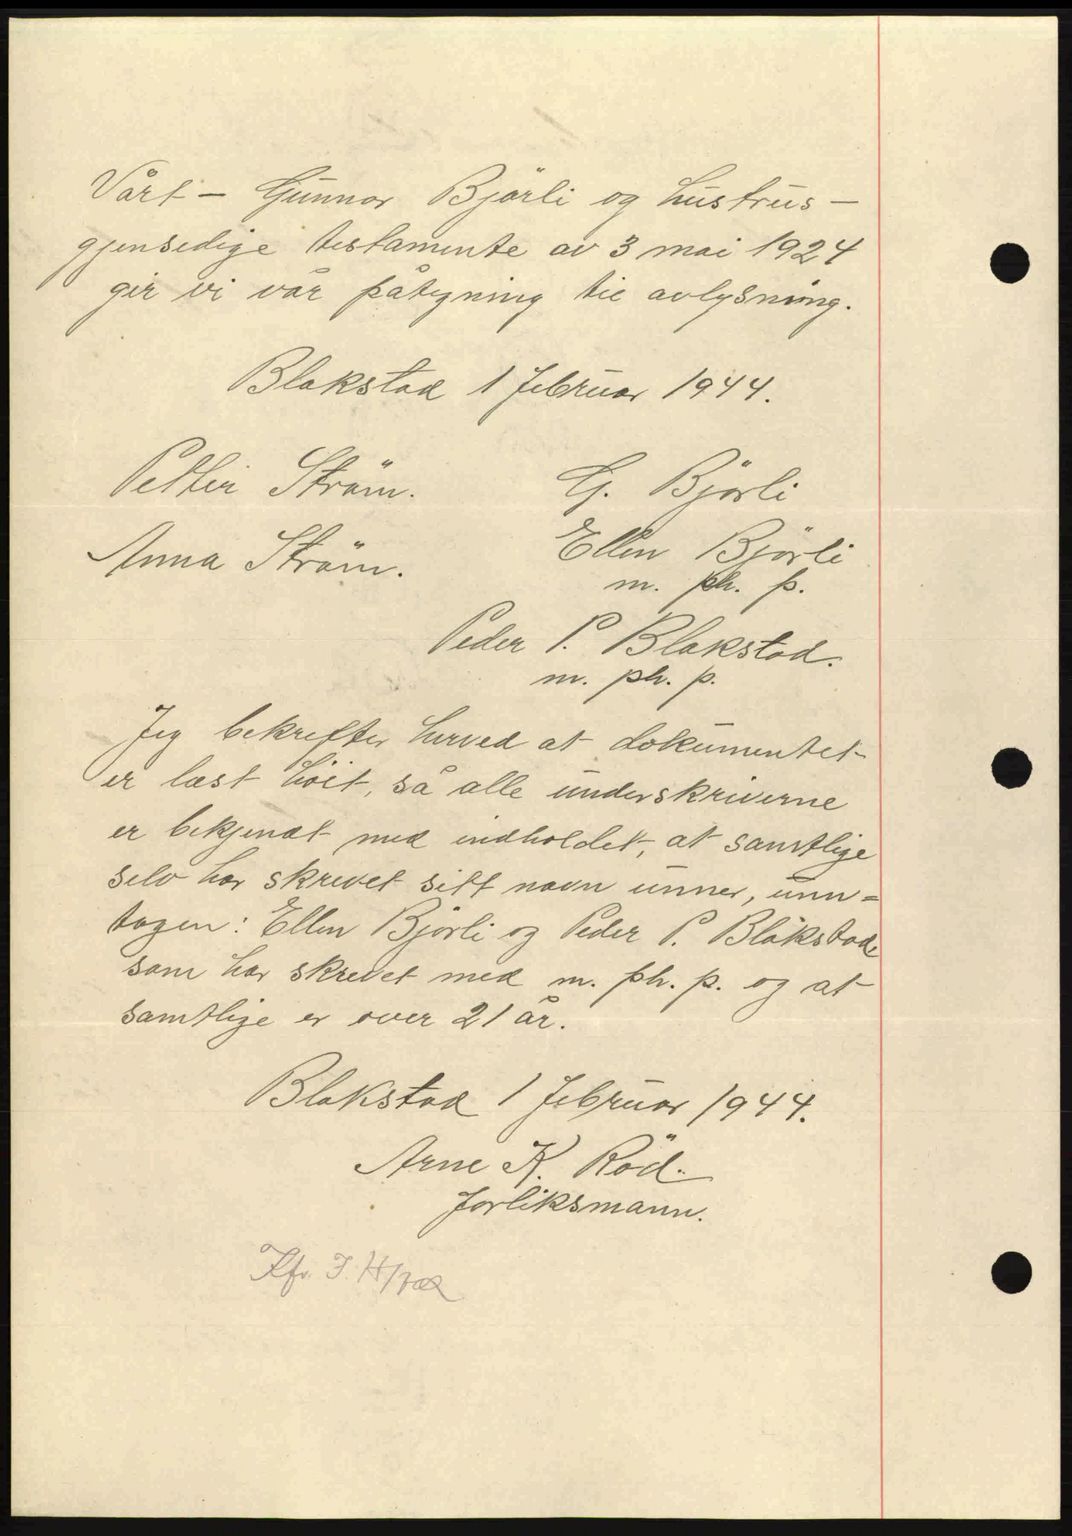 Vårt - Gunnar Bjørli og hustrus -
gjensedige testamente av 3 mai 1924
gir vi vår påtegning til avlysning.
Blakstad 1 februar 1944.
Petter Ström.
G. Björli
Anna Ström.
Ellen Björli
m. ph. p.
Peder P. Blakstad.
m. ph. p.
Jeg bekrefter herved at dokumentet
er læst höit, så alle underskriverne
er bekjendt med indholdet, at samtlige
selv har skrevet sitt navn unner, unn=
tagen: Ellen Björli og Peder P. Blakstad
som har skrevet med m. ph. p. og at
samtlige er over 21 år.
Blakstad 1 februar 1944.
Arne K. Röd.
forliksmann.